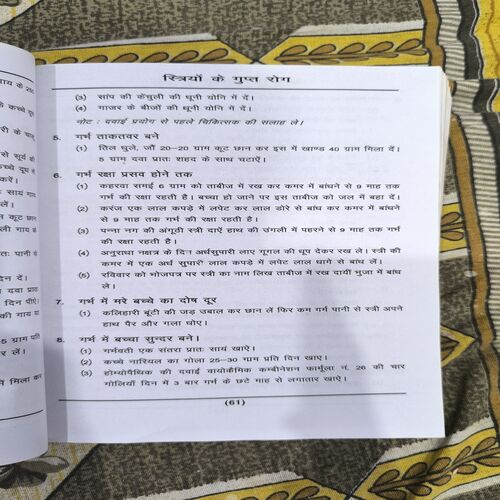 स्त्रियों के गुप्त रोग
(3) सांप की केंचुली की धूनी योनि में दें।
(4) गाजर के बीजों की धूनी योनि में दें।
नोट : दवाई प्रयोग से पहले चिकित्सक की सलाह ले।
5. गर्भ ताकतवर बने
(1) तिल धुले, जौं 20-20 ग्राम कूट छान कर इस में खाण्ड 40 ग्राम मिला दें।
5 ग्राम दवा प्रातः शहद के साथ चटाएँ।
6. गर्भ रक्षा प्रसव होने तक
(1) कहरवा समई 6 ग्राम को ताबीज में रख कर कमर में बांधने से 9 माह तक
गर्भ की रक्षा रहती है। बच्चा हो जाने पर इस ताबीज को जल में बहा दें।
(2) करंज एक लाल कपड़े में लपेट कर लाल डोरे से बांध कर कमर में बांधने
से 9 माह तक गर्भ की रक्षा रहती है।
(3) पन्ना नग की अंगूठी स्त्री दाएं हाथ की उंगली में पहनने से 9 माह तक गर्भ
की रक्षा रहती है।
(4) अनुराधा नक्षत्र के दिन अर्धसुपारी लाए गूगल की धूप देकर रख ले। स्त्री की
कमर में एक अर्ध सुपारी लाल कपड़े में लपेट लाल धागे से बांध लें।
(5) रविवार को भोजपत्र पर स्त्री का नाम लिख ताबीज में रख दायीं भुजा में बांध
ले।
7. गर्भ में मरे बच्चे का दोष दूर
(1) कलिहारी बूंटी की जड़ उबाल कर छान लें फिर कम गर्भ पानी से स्त्री अपने
हाथ पैर और गला धोए।
8. गर्भ में बच्चा सुन्दर बने।
(1) गर्भवती एक संतरा प्रातः सायं खाएँ।
(2) कच्चे नारियल का गोला 25-30 ग्राम प्रति दिन खाएँ।
(3) होम्योपैथिक की दवाई वायोकैमिक कम्बीनेशन फार्मूला नं. 26 की चार
गोलियाँ दिन में 3 बार गर्भ के छटे माह से लगातार खाएँ।
(61)